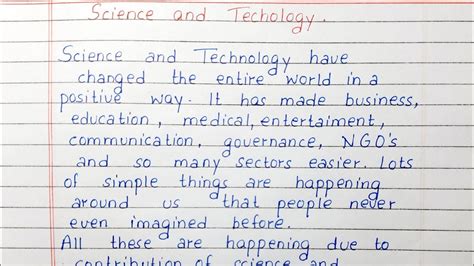 Science and Techology.
Science and Technology have
changed the entire world in a
positive way. It has made business,
education, medical, entertaiment,
communication, governance, NGO's
and so many sectors easier. Lots
of simple things are happening
around us that people never
even imagined before.
All these are happening due to
contribution of science and